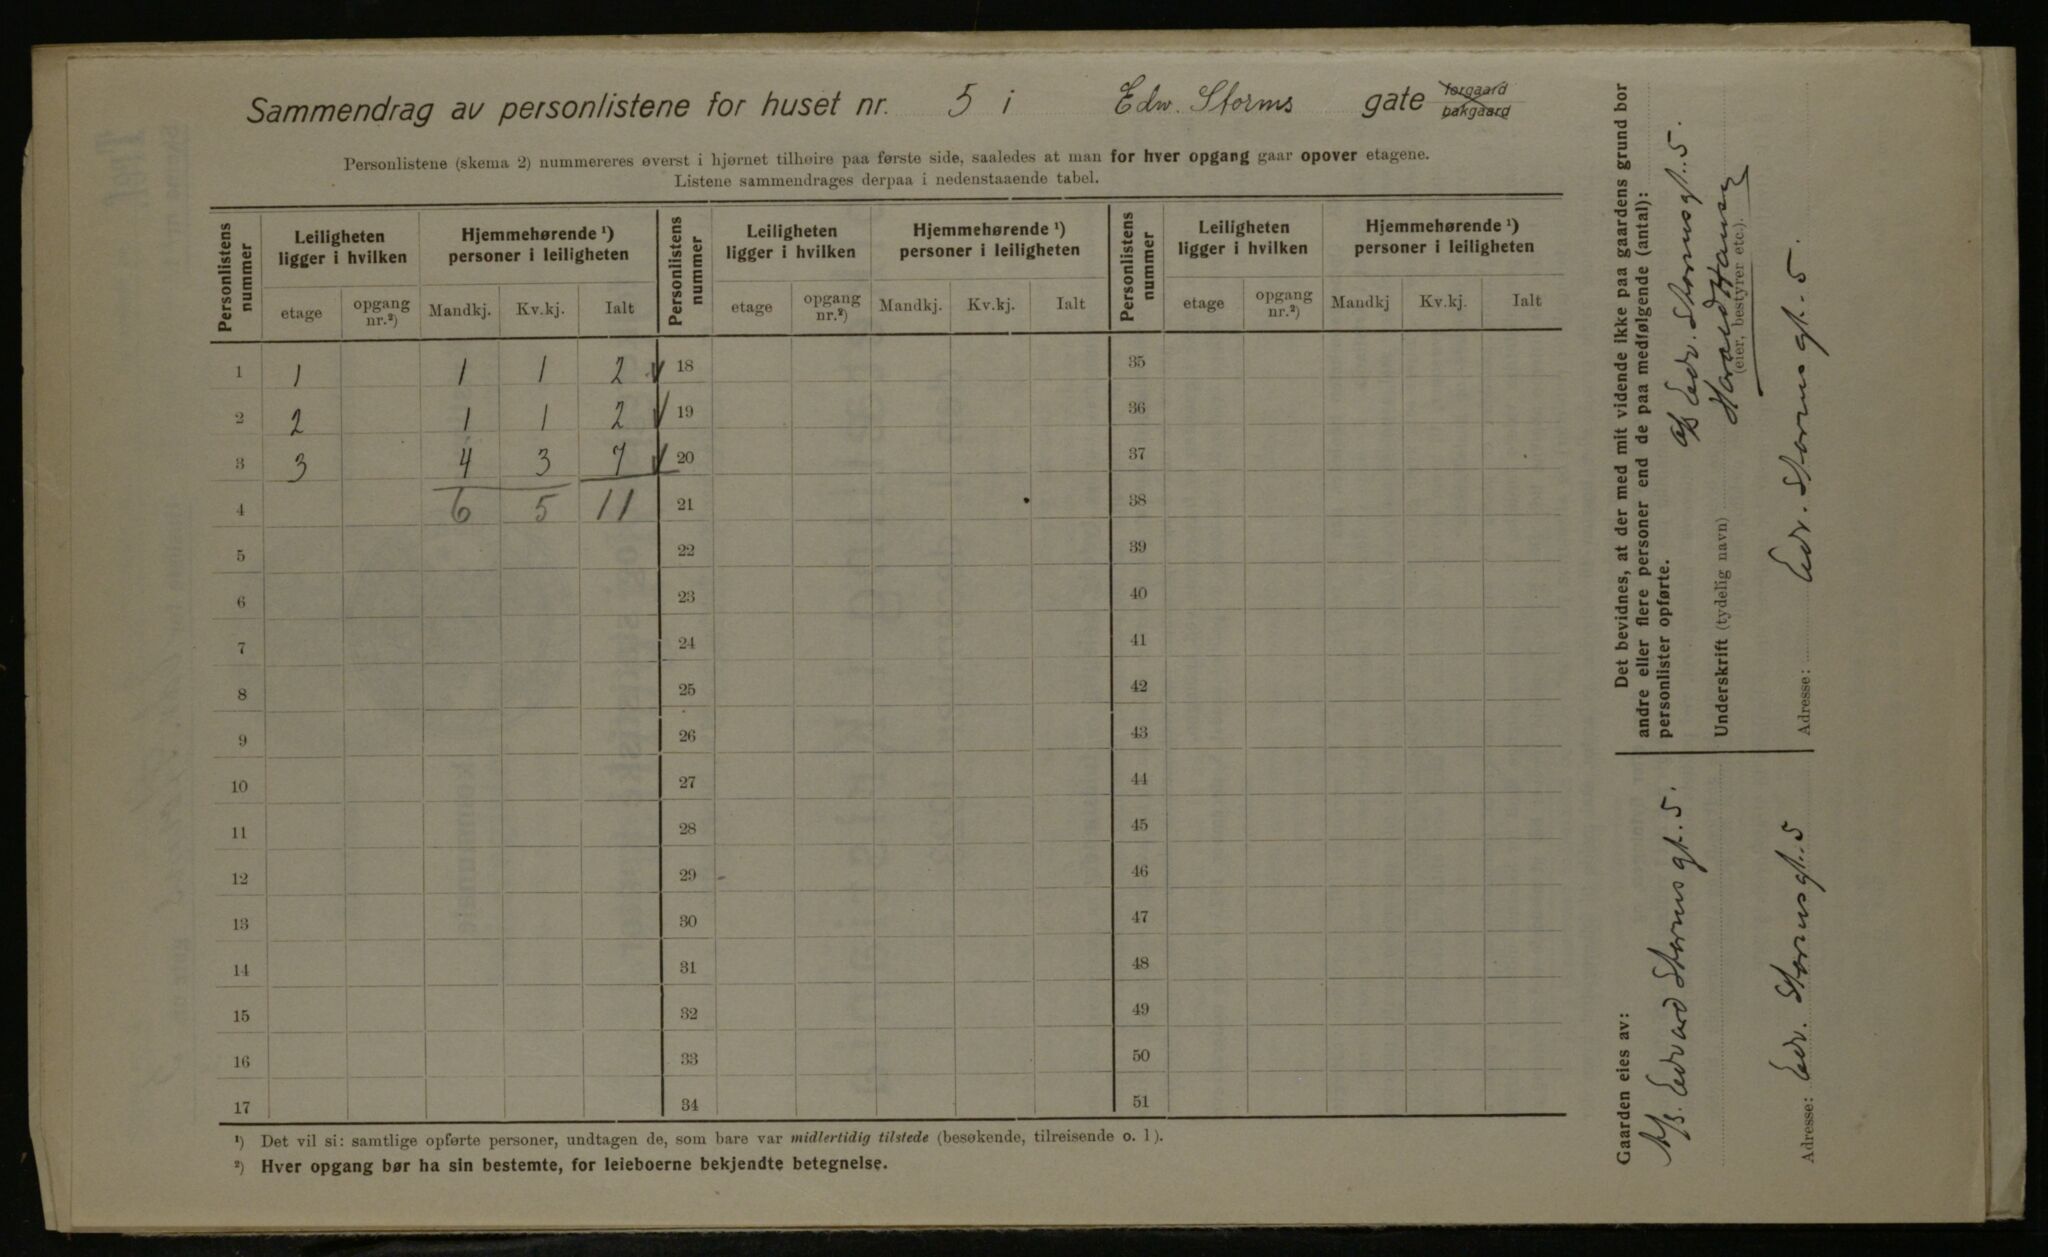 Sammendrag av personlistene for huset nr. 5 i Edw. Storms gate forgaard bakgaard
Personlistene (skema 2) nummereres øverst i hjørnet tilhøire paa første side, saaledes at man for hver opgang gaar opover etagene.
Listene sammendrages derpaa i nedenstaaende tabel.
Personlistens nummer | Leiligheten ligger i hvilken | Hjemmehørende ¹) personer i leiligheten | Personlistens nummer | Leiligheten ligger i hvilken | Hjemmehørende ¹) personer i leiligheten | Personlistens nummer | Leiligheten ligger i hvilken | Hjemmehørende ¹) personer i leiligheten
etage | opgang nr.²) | Mandkj. | Kv.kj. | Ialt | etage | opgang nr.²) | Mandkj. | Kv.kj. | Ialt | etage | opgang nr.²) | Mandkj | Kv.kj. | Ialt
1 1 1 1 2 18 35
2 2 1 1 2 19 36
3 3 4 3 7 20 37
4 6 5 11 21 38
5 22 39
6 23 40
7 24 41
8 25 42
9 26 43
10 27 44
11 28 45
12 29 46
13 30 47
14 31 48
15 32 49
16 33 50
17 34 51
¹) Det vil si: samtlige opførte personer, undtagen de, som bare var midlertidig tilstede (besøkende, tilreisende o. l).
²) Hver opgang bør ha sin bestemte, for leieboerne bekjendte betegnelse.
Gaarden eies av:
A/S. Edvard Stormsgt. 5.
Adresse: Edv. Stormsgt. 5
Det bevidnes, at der med mit vidende ikke paa gaardens grund bor
andre eller flere personer end de paa medfølgende (antal):
personlister opførte.
A/S Edv. Stormsgt. 5.
Underskrift (tydelig navn) Harald Hansen
(eier, bestyrer etc.).
Adresse: Edv. Stormsgt. 5.